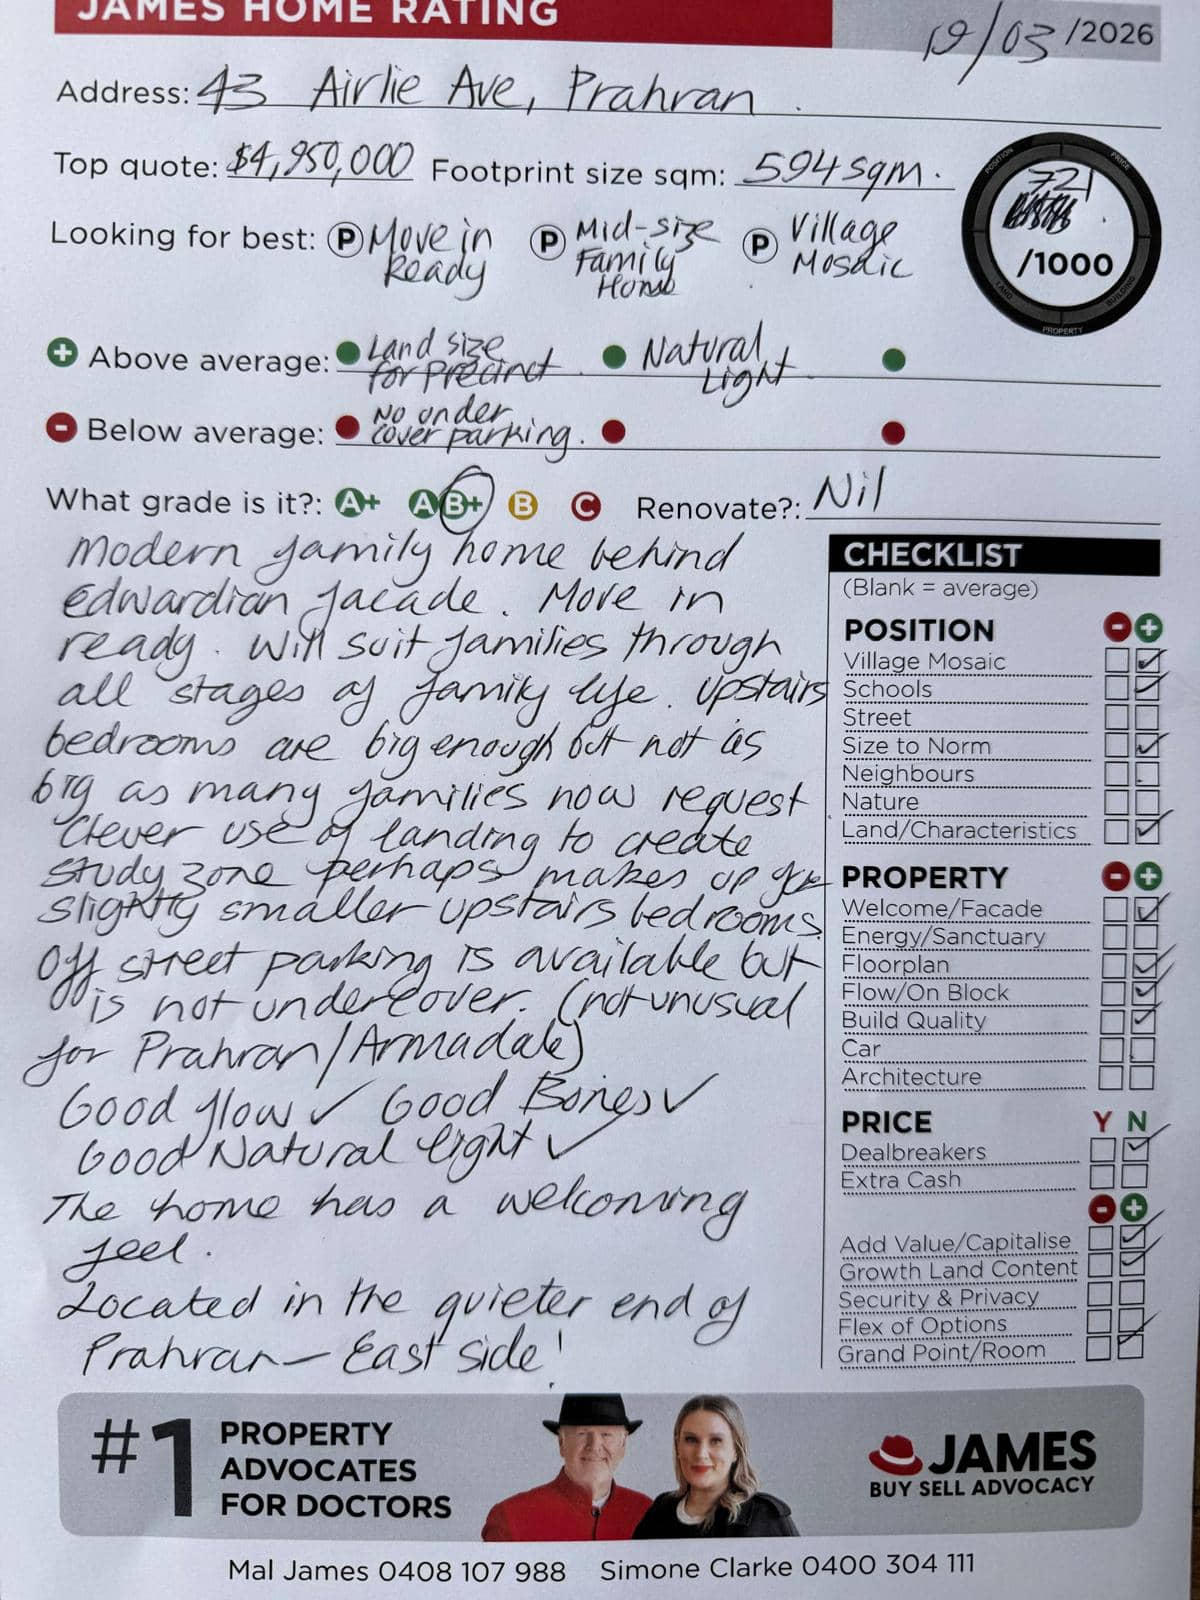 JAMES HOME RATING
19/03/2026
Address: 43 Airlie Ave, Prahran.
Top quote: $4,950,000 Footprint size sqm: 594 sqm.
POSITION
PRICE
LAND
BUILDING
PROPERTY
721
/1000
Looking for best: P Move in Ready P Mid-size Family Home P Village Mosaic
+ Above average: Land size for Precinct. Natural Light.
- Below average: No under cover parking.
What grade is it?: A+ A B+ B C Renovate?: Nil
Modern family home behind
Edwardian facade. Move in
ready. Will suit families through
all stages of family life. Upstairs
bedrooms are big enough but not as
big as many families now request
Clever use of landing to create
study zone perhaps makes up for
slightly smaller upstairs bedrooms.
Off street parking is available but
is not undercover. (not unusual
for Prahran/Armadale)
Good flow ✓ Good Bones ✓
Good Natural light ✓
The home has a welcoming
feel.
Located in the quieter end of
Prahran - East side!
CHECKLIST
(Blank = average)
POSITION - +
Village Mosaic ✓
Schools ✓
Street
Size to Norm ✓
Neighbours
Nature
Land/Characteristics ✓
PROPERTY - +
Welcome/Facade ✓
Energy/Sanctuary
Floorplan ✓
Flow/On Block ✓
Build Quality ✓
Car
Architecture
PRICE Y N
Dealbreakers ✓
Extra Cash
- +
Add Value/Capitalise ✓
Growth Land Content ✓
Security & Privacy
Flex of Options
Grand Point/Room ✓
#1 PROPERTY
ADVOCATES
FOR DOCTORS
JAMES
BUY SELL ADVOCACY
Mal James 0408 107 988 Simone Clarke 0400 304 111